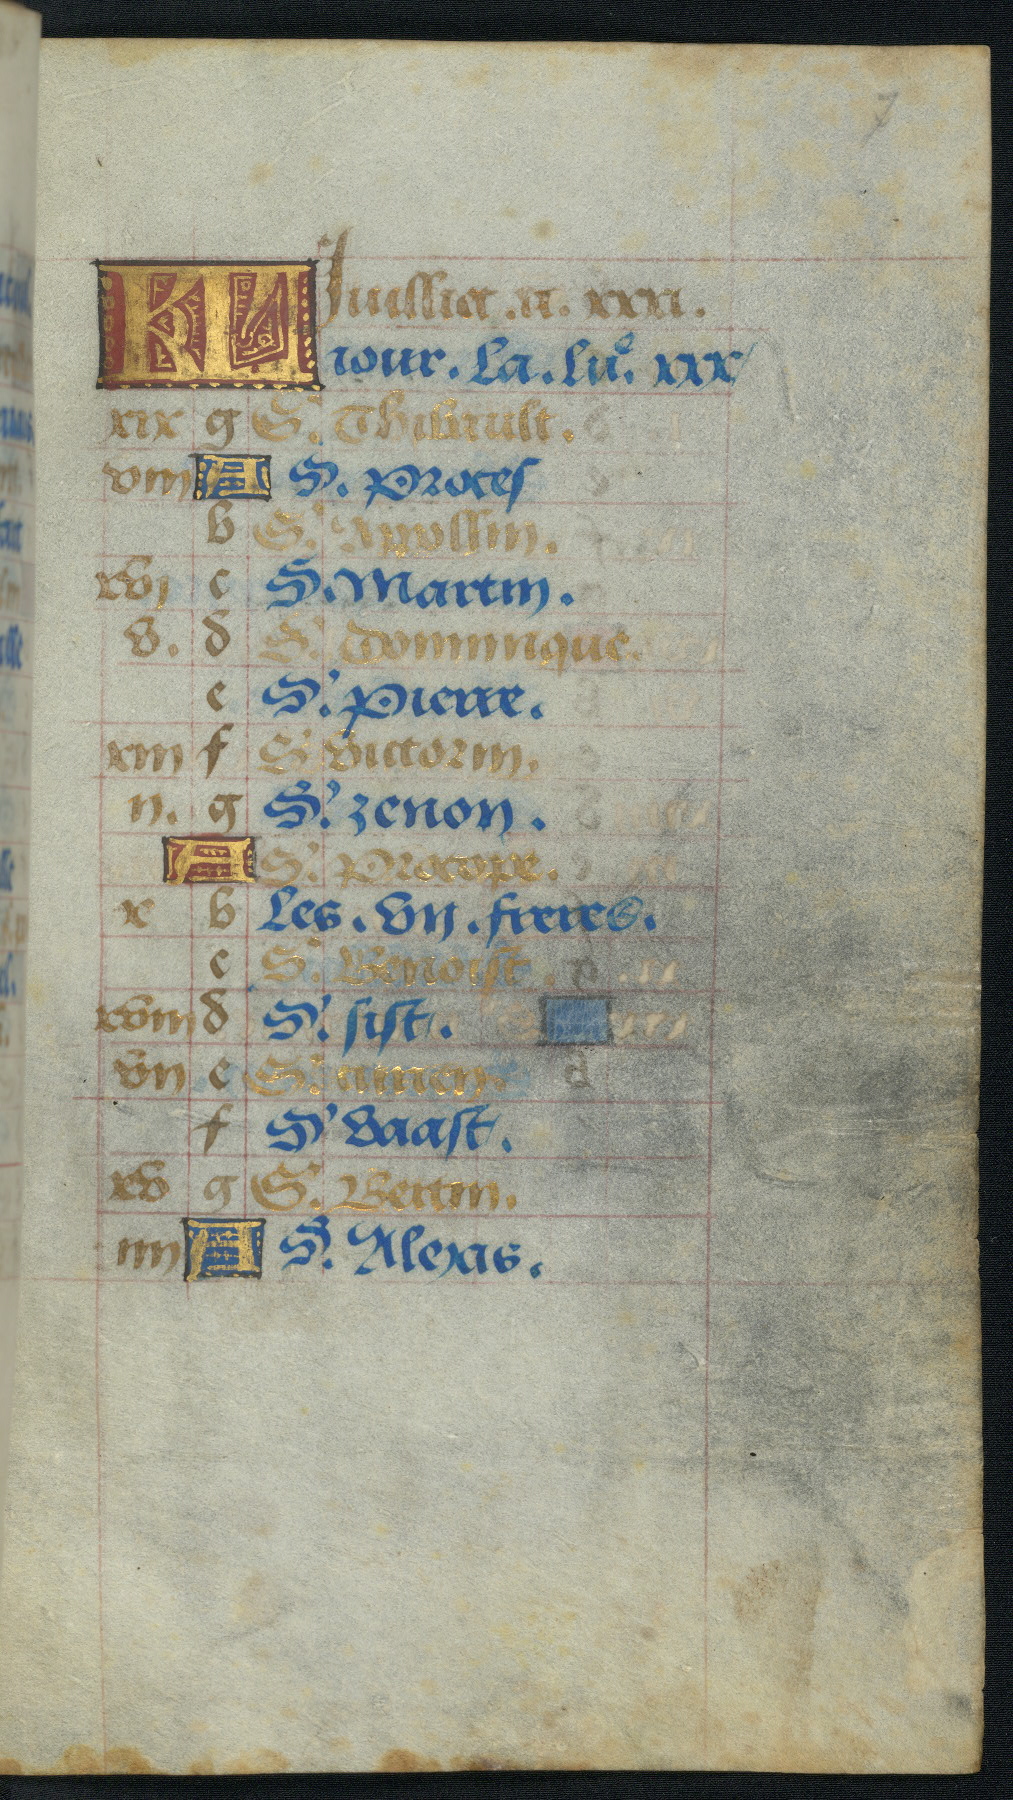 7
KL Juillet .a. xxxi.
iour. La. lu͞e. xxx
xix g S. Thibault.
viii A S. proces
b S. Apollin.
xvj c S. Martin.
v. d S. dominique.
e S. pierre.
xiii f S victorin.
ii. g S. zenon.
A S. procope.
x b Les. vii. freres.
c S. Benoist.
xviii d S. sixt.
vii e S.
f S vaast.
xv g S. Bertin.
iiii A S. Alexis.